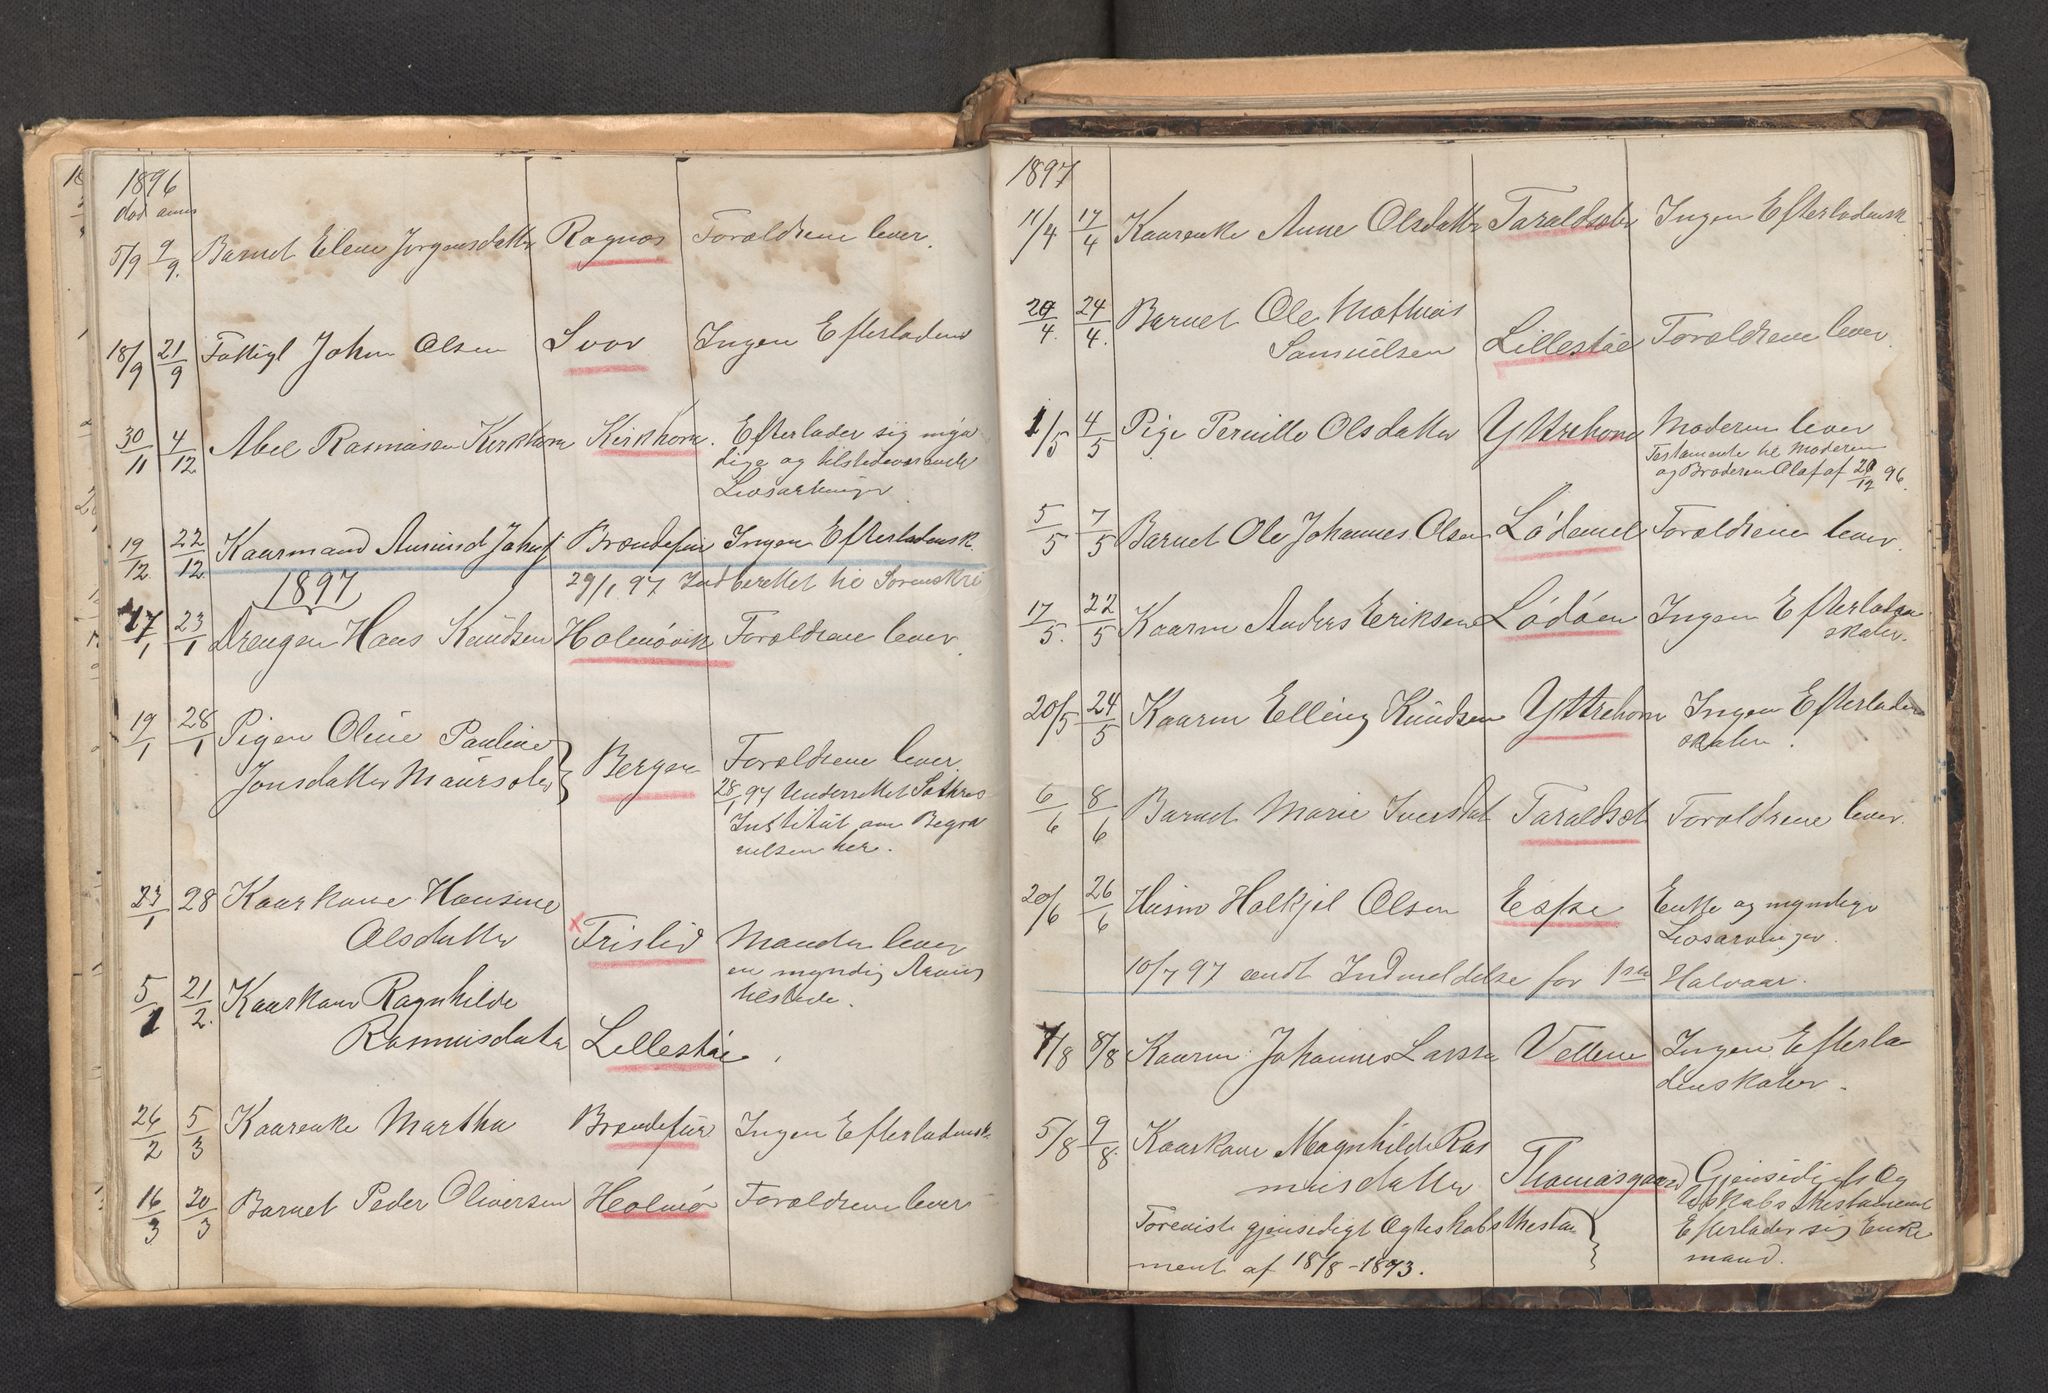 1896
död anm
5/9 9/9. Barnet Elene Jørgensdatter Ragnøs Forældrene lever.
18/9 21/9 Fattigl John Olsen Svor Ingen Efterladens
30/11 4/12 Abel Rasmussen Kirkhorn Kirkhorn. Efterlader sig myn
dige og tilstedeværende
Livsarvinger
19/12 22/12 Kaarmand Amund Johs Brændefur Ingen Efterladensk
1897 29/1 97 Indberettet til Sorenskri
17/1 23/1 Drengen Hans Knudsen Holmøvik Forældrene lever.
19/1 28/1 Pigen Oline Pauline
Jonsdatter Maursæter Bergen Forældrene lever.
28/1 97 Underrettet Sæthres
Institut om Begra
velsen her.
23/1 28 Kaarkone Hansine
Olsdatter Frislid Manden lever
en myndig Arving
tilstede.
5/2 21/2. Kaarkone Ragnhilde
Rasmusdatr Lillestøe
26/2 5/3 Kaarenke Martha Brændefur Ingen Efterladensk.
16/3 20/3 Barnet Peder Oliversen Holmø Forældrene lever
1897
11/4 17/4 Kaarenke Anne Olsdatter Taraldsæter Ingen Efterladensk
20/4. 24/4. Barnet Ole Mathias
Samuelsen Lillestøe Forældrene lever.
1/5 4/5 Pige Pernille Olsdatter Yttrehorn Moderen lever
Testamente til Moderen
og Broderen Olaf af 20/12 96.
5/5 7/5 Barnet Ole Johannes Olsen Lødemel Forældrene lever.
17/5. 22/5 Kaarm Anders Eriksen Lødøen Ingen Efterladen
skaber.
20/5 24/5 Kaarm Elling Knudsen Yttrehorn Ingen Efterladen
skaber.
6/6 8/6 Barnet Marie Iversdat Taraldset Forældrene lever.
20/6 26/6 Husm Halkjel Olsen Espe Enke og myndige
Livsarvinger.
10/7 97 sendt Indmeldelse for 1ste Halvaar.
7/8 8/8 Kaarm: Johannes Larssen Vellene Ingen Efterla
denskaber.
5/8 9/8. Kaarkone Magnhilde Ras
musdatter Thomasgaard Gjensidigt Æg
teskabs Thestament
Foreviste gjensidigt Ægteskabs thesta Efterlader sig Enke
ment af 18/8-1893. mand.